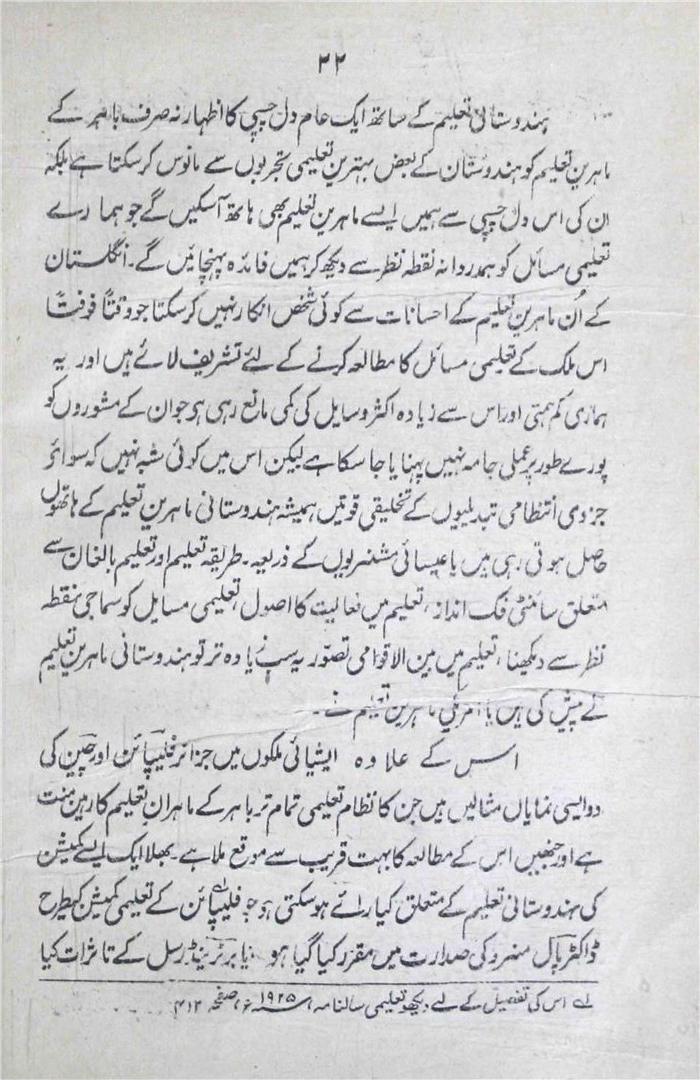 ۲۲
ہندوستانی تعلیم کے ساتھ ایک عام دل چسپی کا اظہار نہ صرف باہر کے
ماہرین تعلیم کو ہندوستان کے بعض بہترین تعلیمی تجربوں سے مانوس کر سکتا ہے بلکہ
ان کی اس دل چسپی سے ہمیں ایسے ماہرین تعلیم بھی ہاتھ آ سکیں گے جو ہمارے
تعلیمی مسائل کو ہمدردانہ نقطہ نظر سے دیکھ کر ہمیں فائدہ پہنچائیں گے۔ انگلستان
کے اُن ماہرین تعلیم کے احسانات سے کوئی شخص انکار نہیں کر سکتا جو وقتاً فوقتاً
اس ملک کے تعلیمی مسائل کا مطالعہ کرنے کے لئے تشریف لائے ہیں اور یہ
ہماری کم ہمتی اور اس سے زیادہ اکثر وسایل کی کمی مانع رہی ہو جو ان کے مشوروں کو
پورے طور پر عملی جامہ نہیں پہنایا جا سکا ہے لیکن اس میں کوئی شبہ نہیں کہ سوائے
جزوی انتظامی تبدیلیوں کے تخلیقی قوتیں ہمیشہ ہندوستانی ماہرین تعلیم کے ہاتھوں
حاصل ہوتی رہی ہیں یا عیسائی مشنریوں کے ذریعہ۔ طریقہ تعلیم اور تعلیم بالغان سے
متعلق سائنٹی فک انداز، تعلیم میں فعالیت کا اصول، تعلیمی مسایل کو سماجی نقطہ
نظر سے دیکھنا، تعلیم میں بین الاقوامی تصور یہ سب زیادہ تر تو ہندوستانی ماہرین تعلیم
نے پیش کی ہیں یا امریکی ماہرین تعلیم نے۔
اس کے علاوہ ایشیائی ملکوں میں جزائر فلیپائن اور چین کی
دو ایسی نمایاں مثالیں ہیں جن کا نظام تعلیمی تمام تر باہر کے ماہران تعلیم کا رہین منت
ہے اور جنھیں اس کے مطالعہ کا بہت قریب سے موقع ملا ہے۔ بھلا ایک ایسے کمیشن
کی ہندوستانی تعلیم کے متعلق کیا رائے ہو سکتی ہو جو فلیپائن کے تعلیمی کمیشن کی طرح
ڈاکٹر پال منرو کی صدارت میں مقرر کیا گیا ہو یا برٹرینڈ رسل کے تاثرات کیا
لے اس کی تفصیل کے لیے دیکھو تعلیمی سالنامہ، سنہ ۱۹۲۵ء، صفحہ ۴۱۲